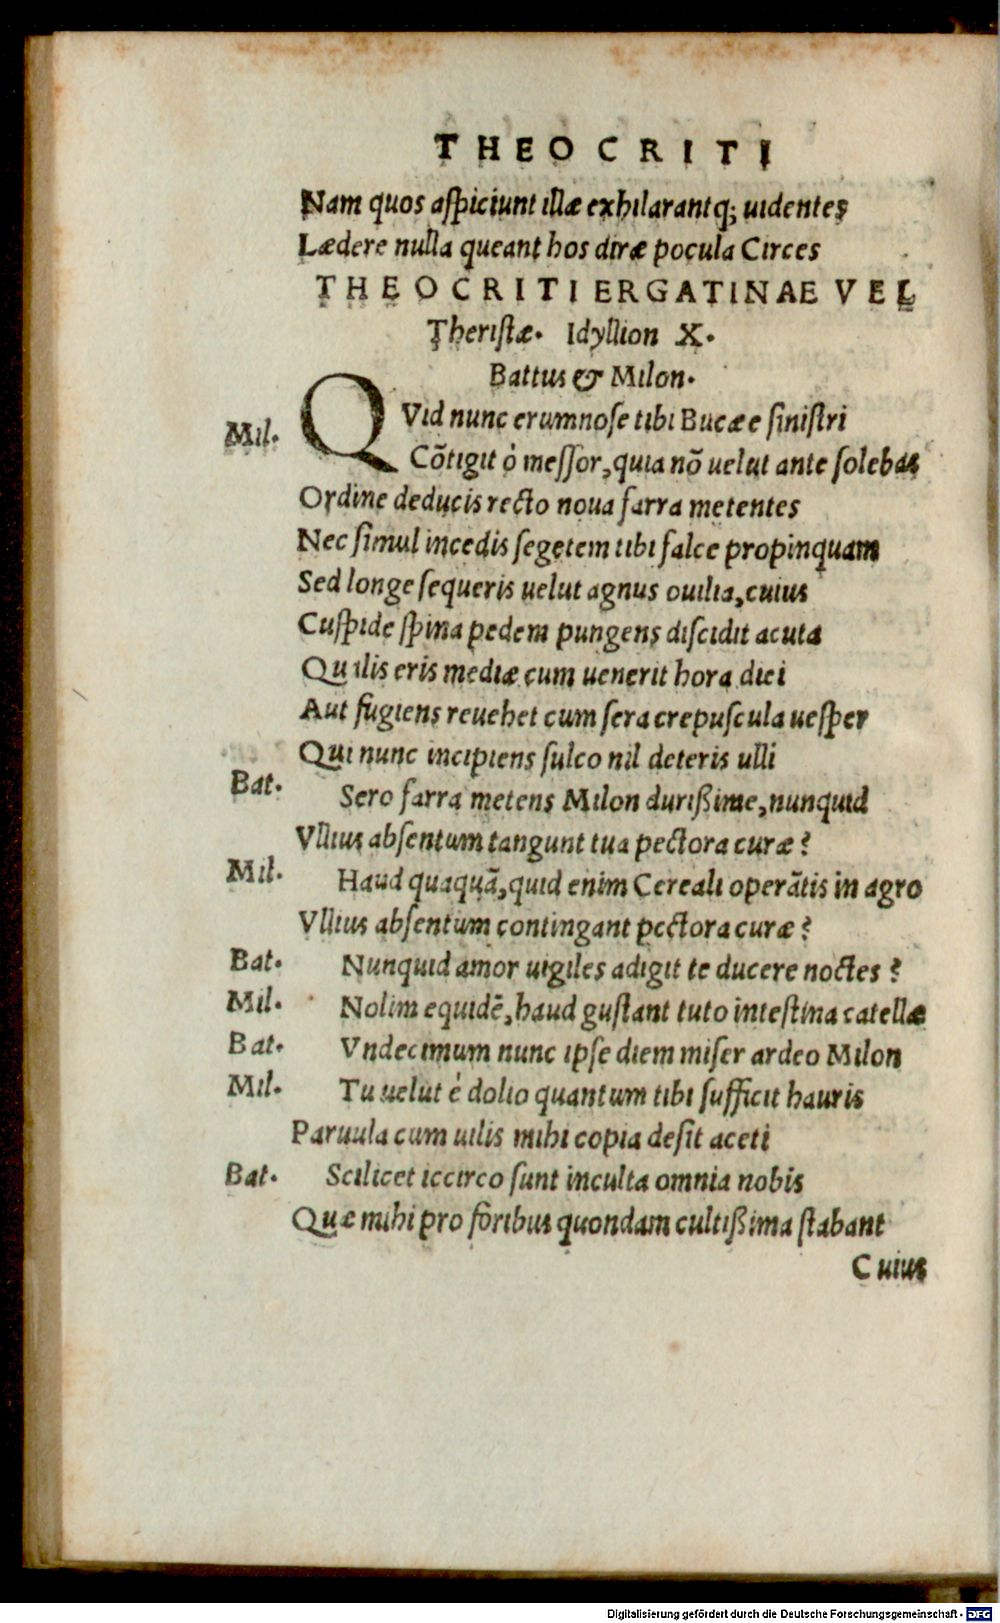 THEOCRITI
Nam quos aspiciunt illæ exhilarantq; uidentes
Lædere nulla queant hos diræ pocula Circes
THEOCRITI ERGATINAE VEL
Theristæ. Idyllion X.
Battus & Milon.
Mil. QVid nunc erumnose tibi Bucæe sinistri
Cõtigit ò messor, quia nõ uelut ante solebas
Ordine deducis recto noua farra metentes
Nec simul incedis segetem tibi falce propinquam
Sed longe sequeris uelut agnus ouilia, cuius
Cuspide spina pedem pungens discidit acuta
Qualis eris mediæ cum uenerit hora diei
Aut fugiens reuehet cum sera crepuscula uesper
Qui nunc incipiens sulco nil deteris ulli
Bat. Sero farra metens Milon durißime, nunquid
Vllius absentum tangunt tua pectora curæ?
Mil. Haud quaquã, quid enim Cereali operãtis in agro
Vllius absentum contingant pectora curæ?
Bat. Nunquid amor uigiles adigit te ducere noctes?
Mil. Nolim equidẽ, haud gustant tuto intestina catellæ
Bat. Vndecimum nunc ipse diem miser ardeo Milon
Mil. Tu uelut è dolio quantum tibi sufficit hauris
Paruula cum uilis mihi copia desit aceti
Bat. Scilicet iccirco sunt inculta omnia nobis
Quæ mihi pro foribus quondam cultißima stabant
Cuius
Digitalisierung gefördert durch die Deutsche Forschungsgemeinschaft - DFG